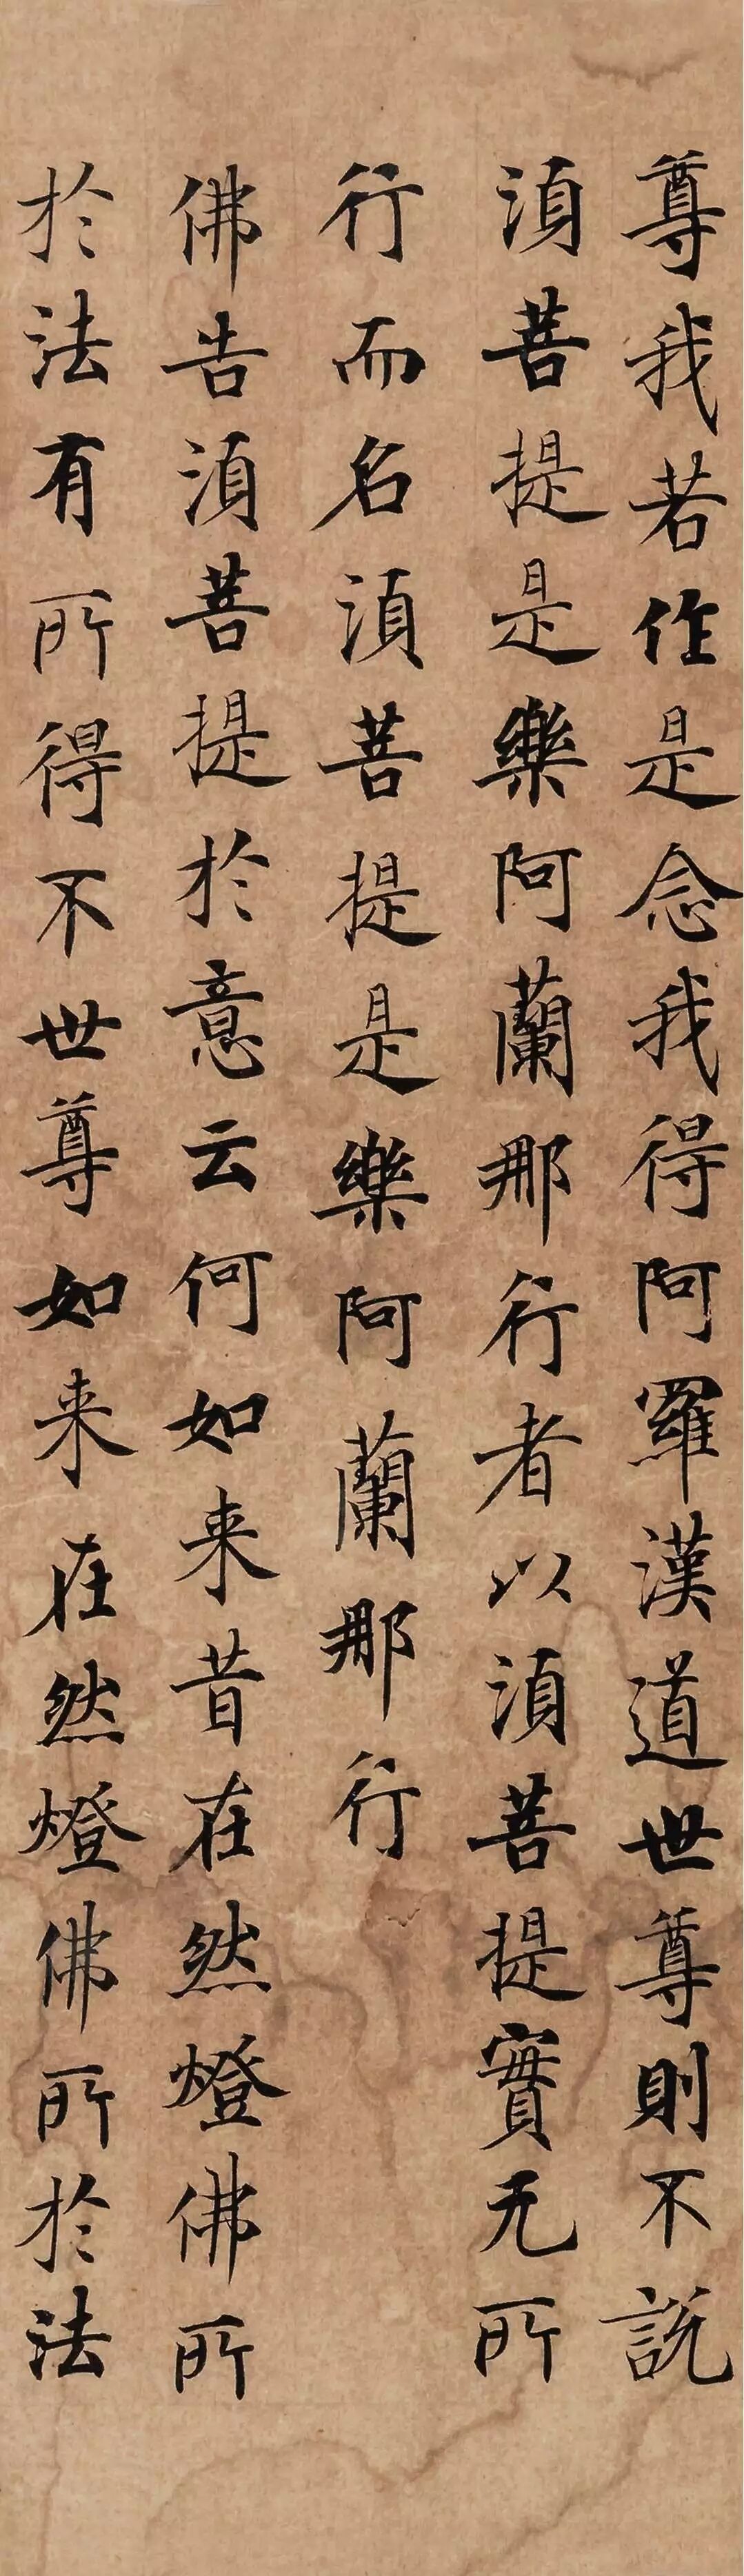 尊我若作是念我得阿羅漢道世尊則不說
湏菩提是樂阿蘭那行者以湏菩提實无所
行而名湏菩提是樂阿蘭那行
佛告湏菩提於意云何如来昔在然燈佛所
於法有所得不世尊如来在然燈佛所於法